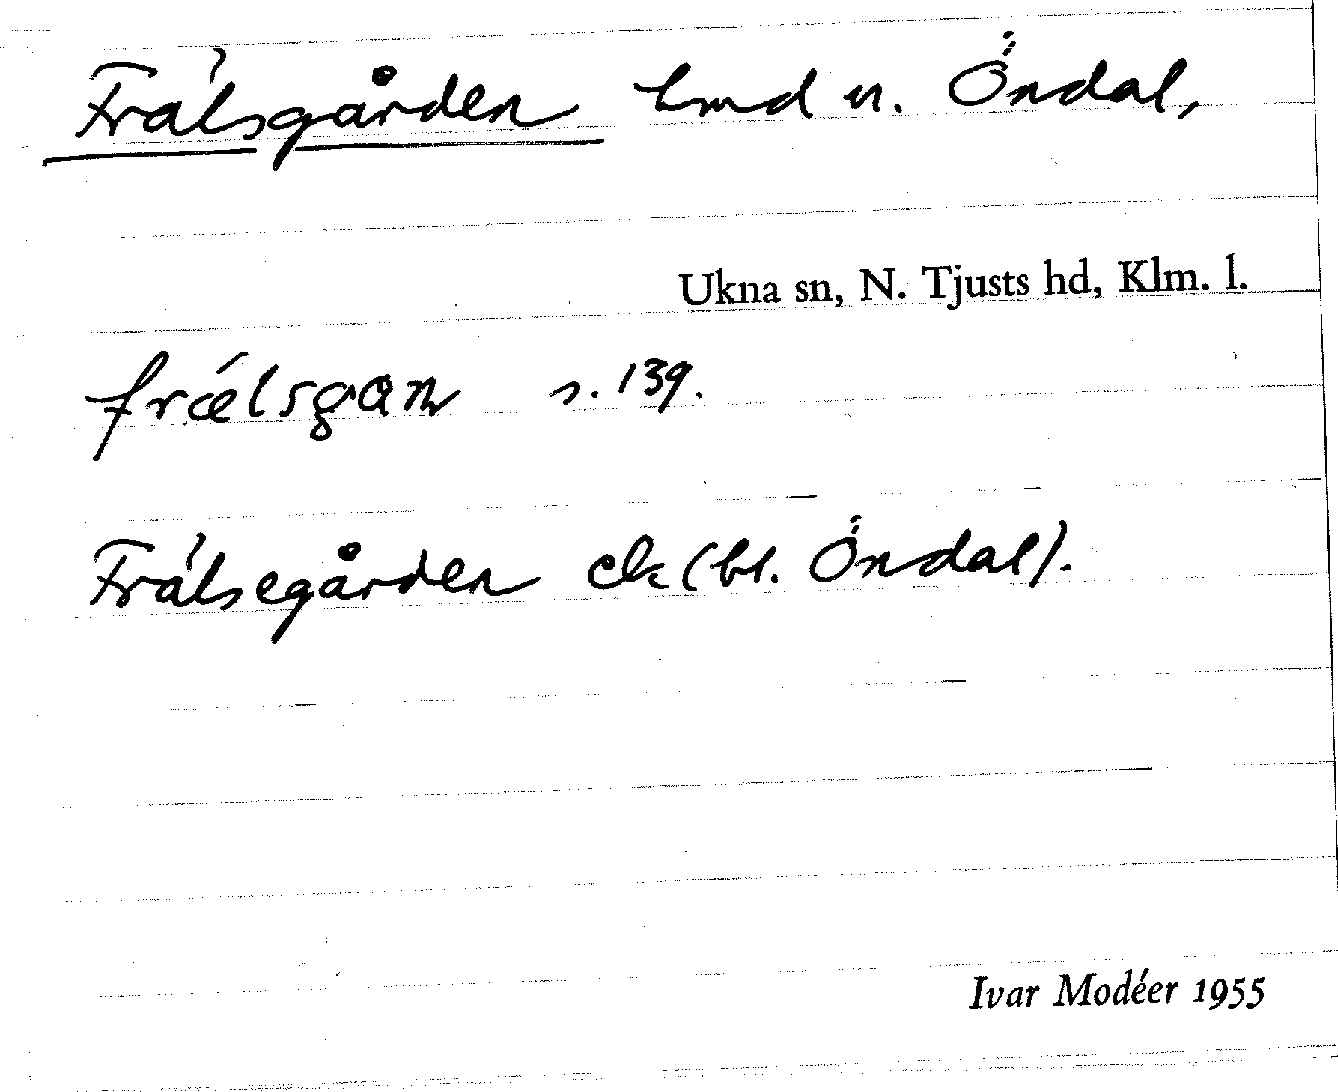 Frälsgården hmd u. Öndal,
Ukna sn, N. Tjusts hd, Klm. l.
frǽlsgan s. 139.
Frälsegården ek (bl. Öndal).
Ivar Modéer 1955